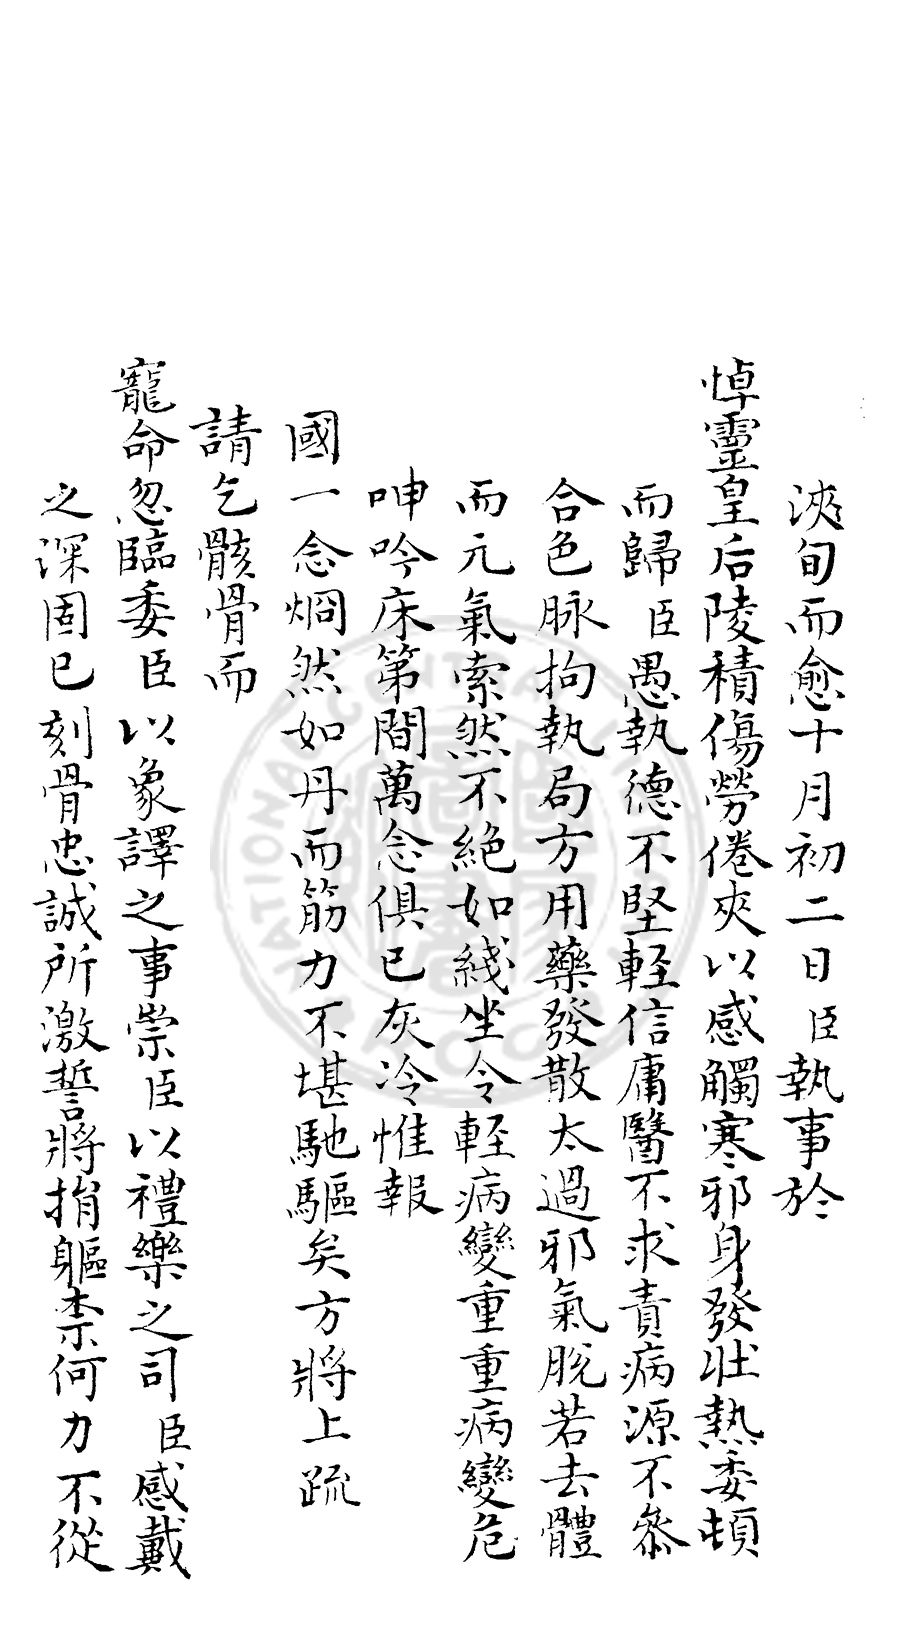 浹旬而愈十月初二日臣執事於
悼靈皇后陵積傷勞倦夾以感觸寒邪身發壯熱委頓
而歸臣愚執德不堅輕信庸醫不求責病源不叅
合色脉拘執局方用藥發散太過邪氣脫若去體
而元氣索然不絕如綫坐令輕病變重重病變危
呻吟床第間萬念俱已灰冷惟報
國一念烱然如丹而筋力不堪馳驅矣方將上疏
請乞骸骨而
寵命忽臨委臣以象譯之事崇臣以禮樂之司臣感戴
之深固已刻骨忠誠所激誓將捐軀柰何力不從
NATIONAL CENTRAL